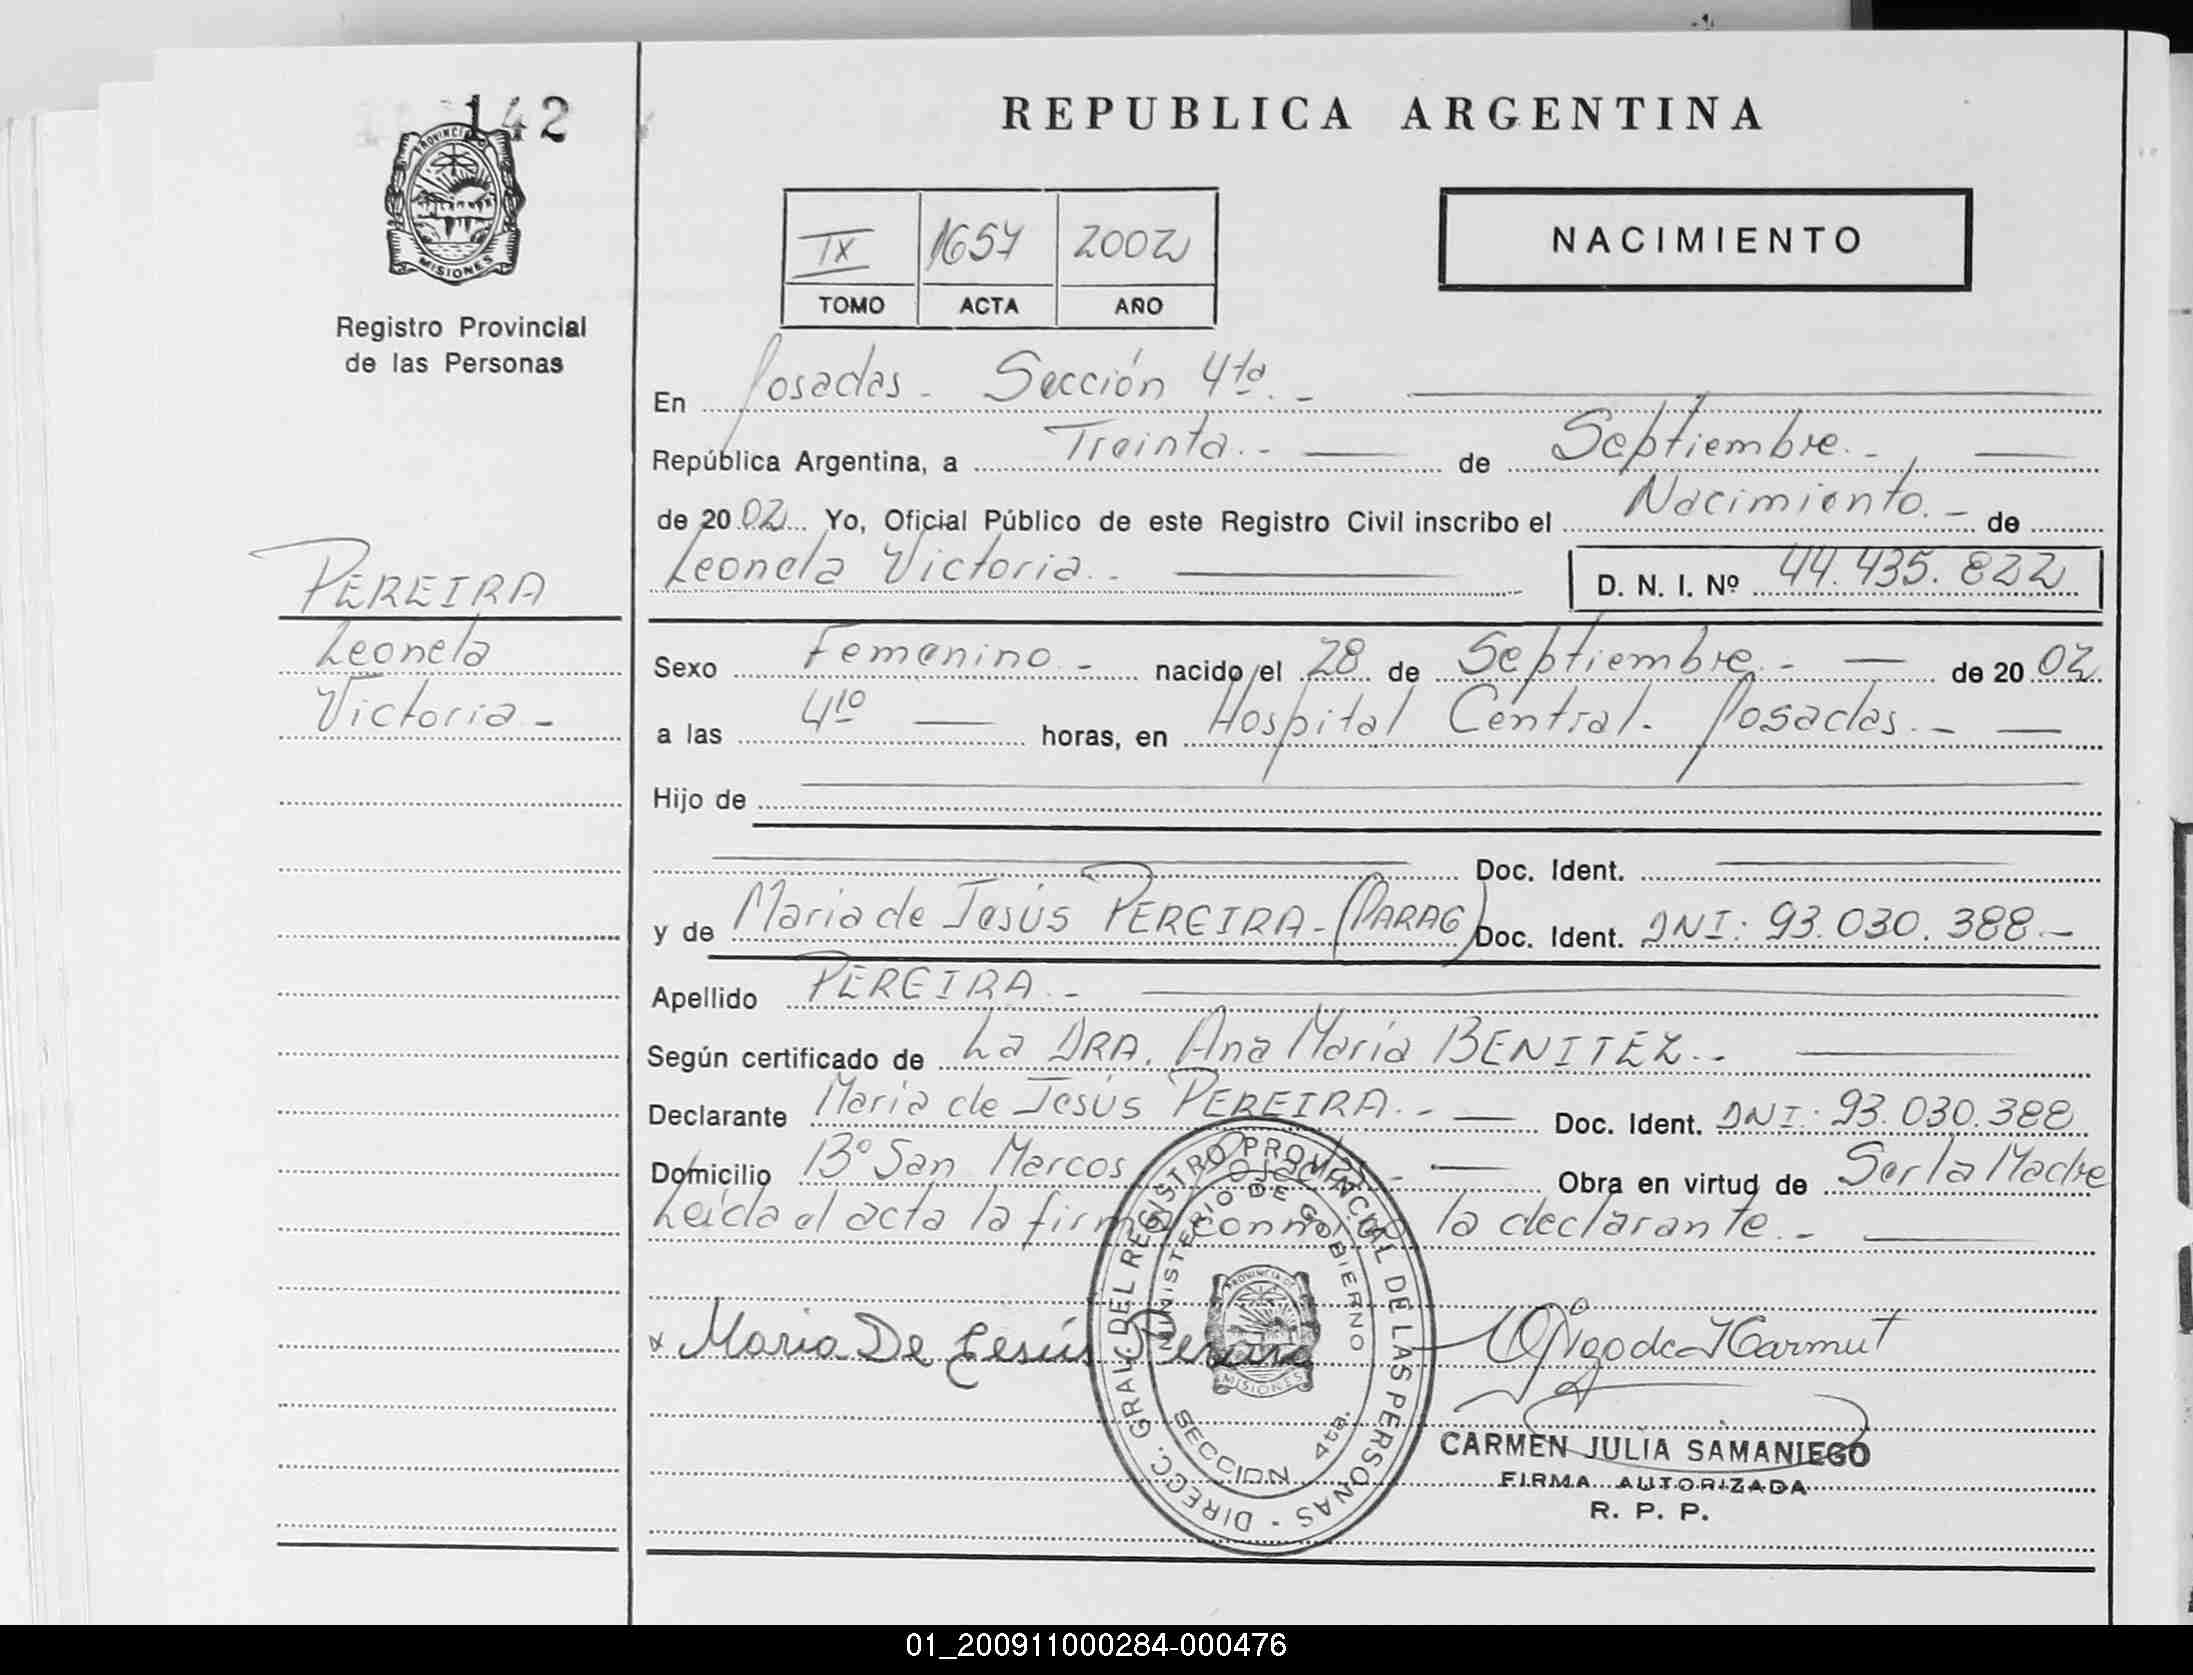 142
PROVINCIA DE
MISIONES
Registro Provincial
de las Personas
PEREIRA
Leonela
Victoria -
REPUBLICA ARGENTINA
IX 1657 2002
TOMO ACTA AÑO
NACIMIENTO
En Posadas - Sección 4ta. -
República Argentina, a Treinta. - de Septiembre. -
de 2002 Yo, Oficial Público de este Registro Civil inscribo el Nacimiento. - de
Leonela Victoria. - D. N. I. Nº 44.435.822
Sexo Femenino - nacido el 28 de Septiembre. - de 2002
a las 4¹⁰ horas, en Hospital Central. Posadas. -
Hijo de
Doc. Ident.
y de Maria de Jesús PEREIRA - (PARAG) Doc. Ident. DNI: 93.030.388. -
Apellido PEREIRA. -
Según certificado de La DRA. Ana María BENITEZ. -
Declarante Maria de Jesús PEREIRA. - Doc. Ident. DNI: 93.030.388
Domicilio Bº San Marcos Posadas. - Obra en virtud de Ser la Madre
Leída el acta la firma conmigo la declarante. -
x Maria De Jesús Pereira
DIRECC. GRAL. DEL REGISTRO PROVINCIAL DE LAS PERSONAS -
MINISTERIO DE GOBIERNO
PROVINCIA DE
MISIONES
SECCION 4ta.
CARMEN JULIA SAMANIEGO
FIRMA AUTORIZADA
R. P. P.
01_200911000284-000476